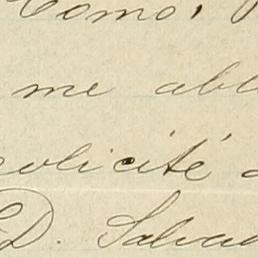 Como,
me abl
solicité a
D. Salvad